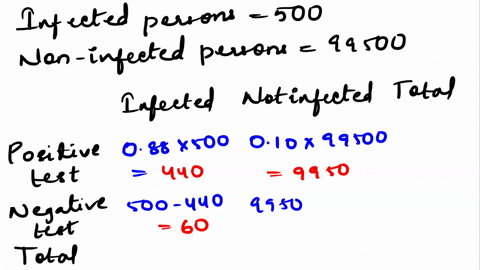 Infected persons = 500
Non-infected persons = 99500
Infected Not infected Total
Positive test 0.88 x 500 = 440 0.10 x 99500 = 9950
Negative test 500 - 440 = 60 9950
Total